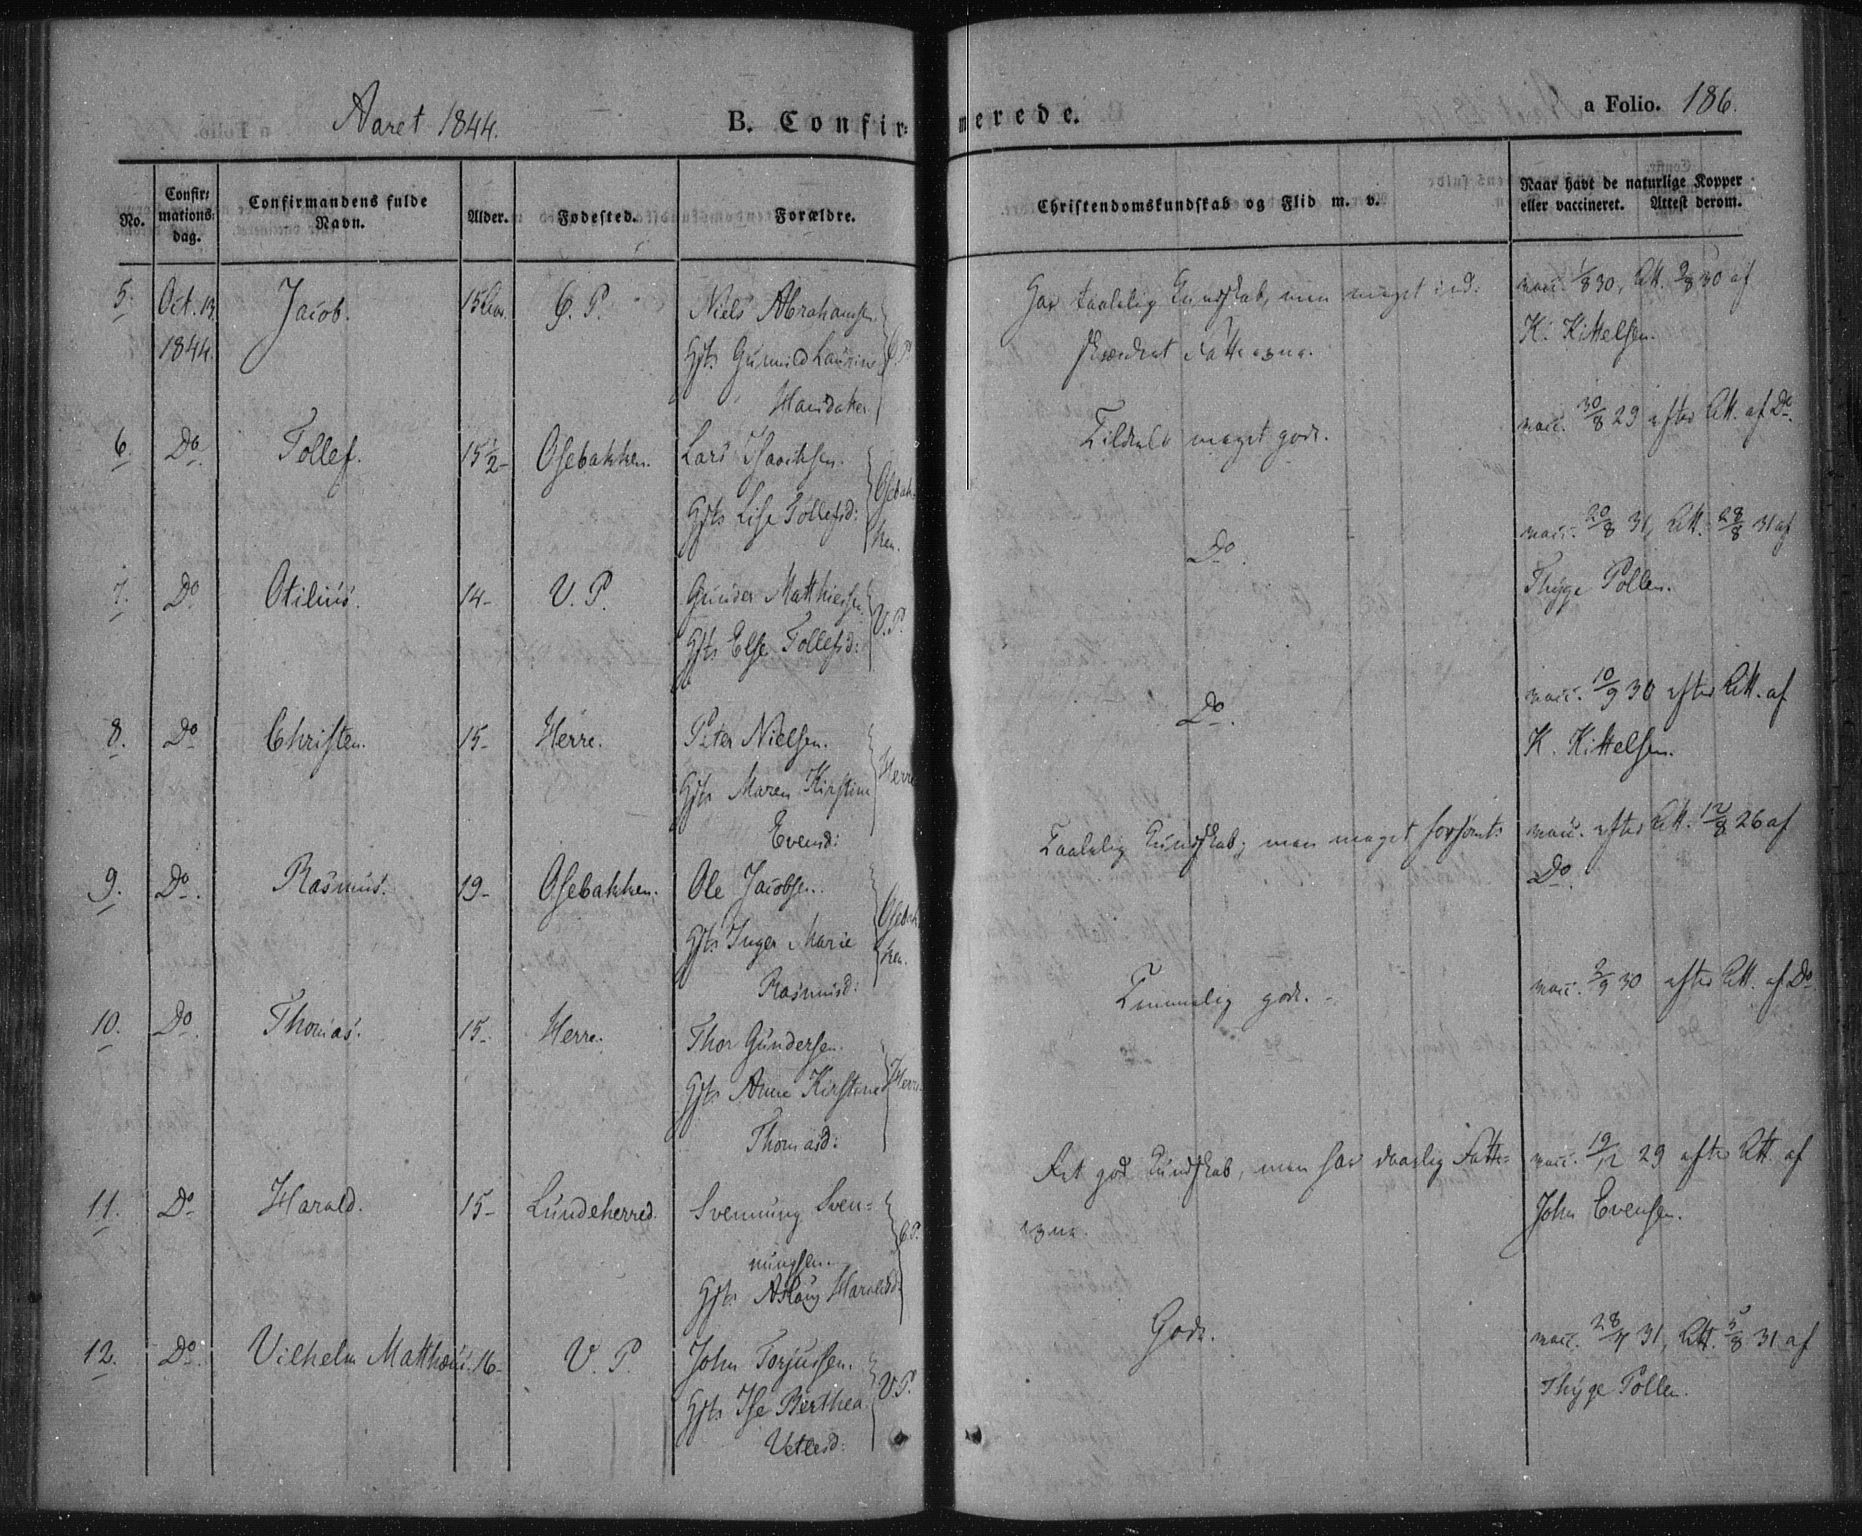 Aaret 1844.
B. Confirmerede.
a Folio. 186.
No.
Confirmations dag.
Confirmandens fulde Navn.
Alder.
Fødested.
Forældre.
Christendomskundskab og Flid m. v.
Naar havt de naturlige Kopper eller vaccineret. Attest derom.
5. Oct. 13. 1844. Jacob. 15 Aar. Ø. P. Niels Abrahamsen.
Gjts Gunnild Laurins
Hansdatter
Har taalelig Kundskab, men meget ind-
skrænket Fatteevne.
vacc. 1/8 30, Att. 9/8 30 af
K. Kittelsen.
6. Do Tollef. 15 1/2 - Osebakken. Lars Isacksen.
Gjts Lise Tollefsd:
Osebak-
ken.
Tildeels meget godt.
vacc. 30/8 29 efter Att. af Do
7. Do Otilius. 14 - V. P. Gunder Matthiesen.
Gjts Else Tollefsd:
V. P.
Do
vacc. 20/8 31, Att. 28/8 31 af
Thyge Pollen.
8. Do Christen. 15 - Herre. Peter Nielsen.
Gjts Maren Kirstine
Evensd:
Herre
Do.
vacc. 10/9 30 efter Att. af
K. Kittelsen.
9. Do. Rasmus. 19 - Osebakken. Ole Jacobsen.
Gjts Inger Marie
Rasmusd:
Osebak
ken.
Taalelig Kundskab; men meget forsømt
vacc. efter Att. 12/8 26 af
Do.
10. Do. Thomas. 15 - Herre. Thor Gundersen.
Gjts Anne Kirstine
Thomasd:
Herre
Temmelig godt. -
vacc. 2/9 30 efter Att. af Do
11. Do Harald. 15 - Lundeherred. Svennung Sven-
nungsen.
Gjts Aslaug Haraldsd:
Ø. P.
Ret god Kundskab, men har daarlig Fatte-
evne.
vacc. 19/12 29 efter Att. af
John Evensen.
12. Do. Vilhelm Matthæus. 16 - V. P. John Torjussen.
Gjts Ise Berthea
Vetlesd:
V. P.
Godt.
vacc. 28/7 31, Att. 5/8 31 af
Thyge Pollen.